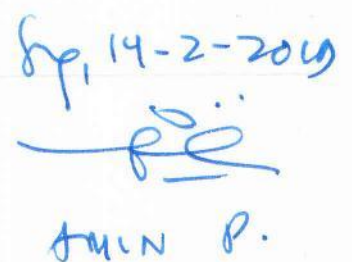 Sby, 14-2-2019
AMIN P.